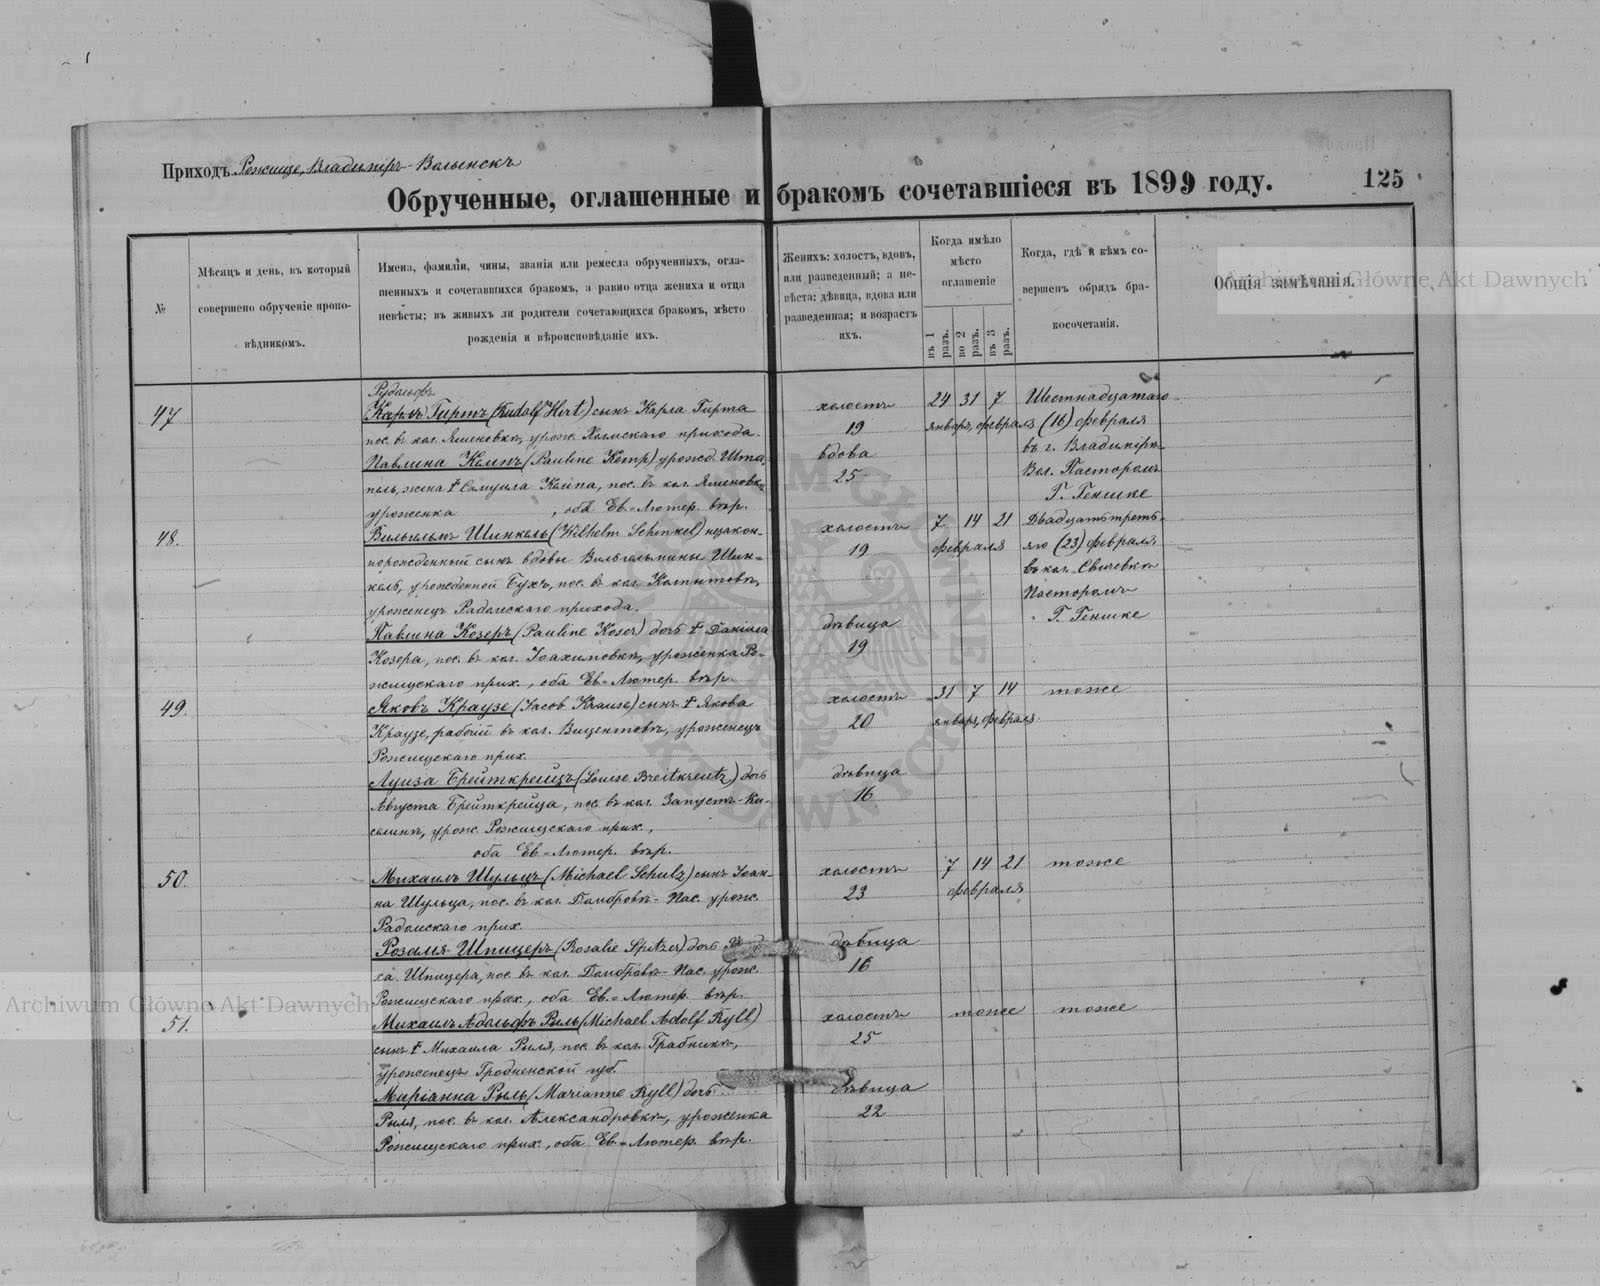 Приходъ Рожище, Владиміръ-Волынскъ
Обрученные, оглашенные и бракомъ сочетавшіеся въ 1899 году.
125
№
Мѣсяцъ и день, въ который
совершено обрученіе пропо-
вѣдникомъ.
Имена, фамиліи, чины, званія или ремесла обрученныхъ, огла-
шенныхъ и сочетавшихся бракомъ, а равно отца жениха и отца
невѣсты; въ живыхъ ли родители сочетающихся бракомъ, мѣсто
рожденія и вѣроисповѣданіе ихъ.
Женихъ: холостъ, вдовъ,
или разведенный; а не-
вѣста: дѣвица, вдова или
разведенная; и возрастъ
ихъ.
Когда имѣло
мѣсто
оглашеніе
въ 1 разъ.
во 2 разъ.
въ 3 разъ.
Когда, гдѣ и кѣмъ со-
вершенъ обрядъ бра-
косочетанія.
Общія замѣчанія.
Archiwum Główne Akt Dawnych
47
Рудольфъ
(Карлъ) Гиртъ (Rudolf Hirt) сынъ Карла Гирта
пос. въ кол. Яменовкѣ, урож. Холмскаго прихода.
Павлина Кемпъ (Pauline Kemp) урожд. Штам-
пель, жена † Самуила Кемпа, пос. въ кол. Яменовкѣ
уроженка , оба Ев.-Лютер. вѣр.
холостъ
19
вдова
25
24 31 7
января, февраля
Шестнадцатаго
(16) февраля
въ г. Владимірѣ-
Вол. Пасторомъ
Г. Генике
48.
Вильгельмъ Шинкель (Wilhelm Schinkel) незакон-
норожденный сынъ вдовы Вильгельмины Шин-
кель, урожденной Бухъ, пос. въ кол. Колпытовкѣ,
уроженецъ Радомскаго прихода.
Павлина Козеръ (Pauline Koser) дочь † Даніила
Козера, пос. въ кол. Іоахимовкѣ, уроженка Ро-
жищскаго прих., оба Ев.-Лютер. вѣр.
холостъ
19
дѣвица
19
7 14 21
февраля
Двадцатьтреть-
яго (23) февраля
въ кол. Свичевкѣ
Пасторомъ
Г. Генике
49.
Яковъ Краузе (Jacob Krause) сынъ † Якова
Краузе, рабочій въ кол. Вицентовкѣ, уроженецъ
Рожищскаго прих.
Луиза Брейткрейцъ (Louise Breitkreutz) дочь
Августа Брейткрейца, пос. въ кол. Запустъ-Ки-
селинѣ, урож. Рожищскаго прих.,
оба Ев.-Лютер. вѣр.
холостъ
20
дѣвица
16
31 7 14
января, февраля
тоже
50.
Михаилъ Шульцъ (Michael Schulz) сынъ Іоан-
на Шульца, пос. въ кол. Домбровѣ-Пас. урож.
Радомскаго прих.
Розалія Шпицеръ (Rosalie Spitzer) дочь
ха Шпицера, пос. въ кол. Домбровѣ-Пас. урож.
Рожищскаго прих., оба Ев.-Лютер. вѣр.
холостъ
23
дѣвица
16
7 14 21
февраля
тоже
51.
Михаилъ Адольфъ Рыль (Michael Adolf Ryll)
сынъ † Михаила Рыля, пос. въ кол. Грабникѣ,
уроженецъ Гродненской губ.
Маріанна Рыль (Marianne Ryll) дочь
Рыля, пос. въ кол. Александровкѣ, уроженка
Рожищскаго прих., оба Ев.-Лютер. вѣр.
холостъ
25
дѣвица
22
тоже
тоже
Archiwum Główne Akt Dawnych